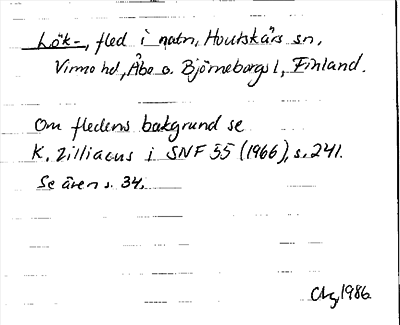 Lök-, fled i natn, Houtskärs sn,
Virmo hd, Åbo o. Björneborgs l, Finland.
Om fledens bakgrund se
K. Zilliacus i SNF 55 (1966), s. 241.
Se även s. 34.
1986